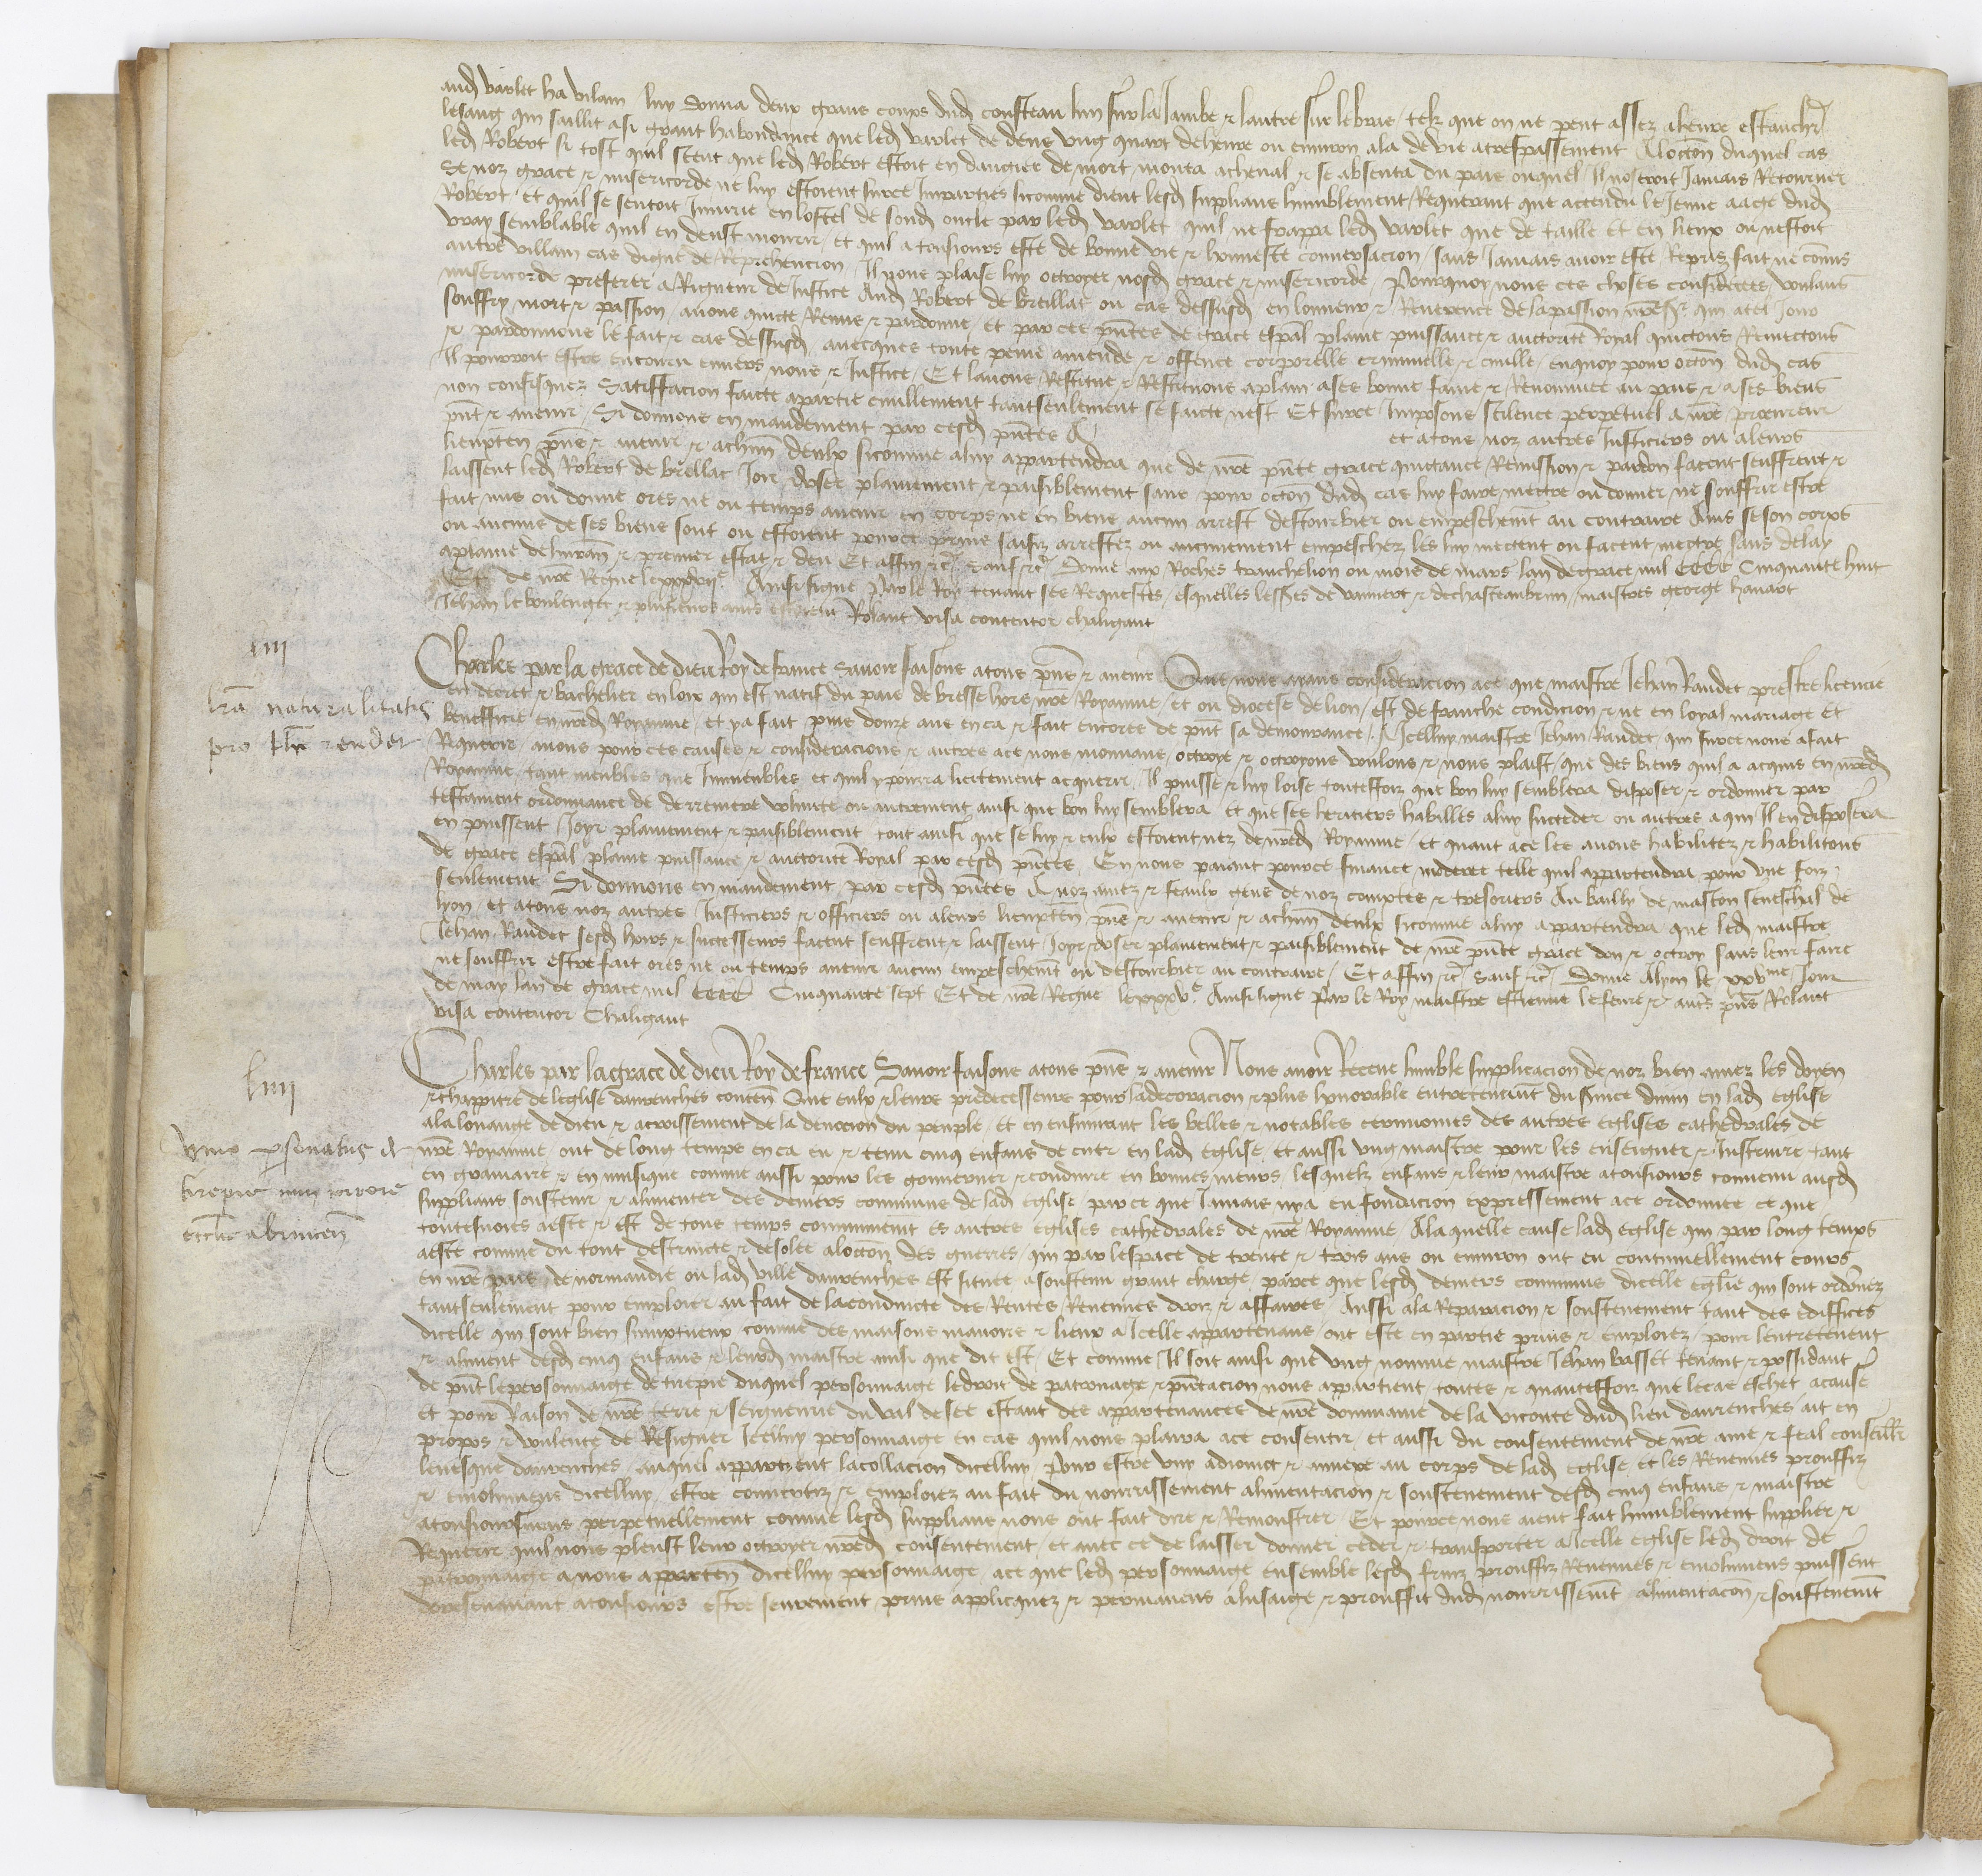 aud varlet ha vilam luy donna deux grans coups dud cousteau lun sur la Jambe & lautre sur le bras telz que on ne peut assez a heure estancher
le sang qui saillit a si grant habondance que led varlet de dens ung quart deheure ou environ ala de vie a trespassement A loccōn duquel cas
led Robert si tost quil sceut que led Robert estoit en dangier de mort monta acheval & se absenta du pais ouquel Il noseroit Jamais Retourner
Se noz grace & misericorde ne luy estoient surce Imparties sicomme dient lesd supplians humblement Requerant que actendu le Jeune aage dud
Robert et quil se sentoit Iniurie en lostel de sond oncle par led varlet quil ne frappa led varlet que de taille et en lieux ou nestoit
vray semblable quil en deust mourir et quil a tousiours este de bonne vie & honneste conversacion sans Jamais avoir este Repris fait ne cōmis
autre villain cas digne de Reprehencion Il nous plaise luy octroyer nosd grace & misericorde Pourquoy nous ces choses considerees voulans
misericorde preferer a Rigueur de Justice Aud Robert de brellac ou cas dessusd en lonneur & Reverence de la passion nrēsr qui atel Jour
souffry mort & passion avons quicte Remis & pardonne et par ces pñtes de grace espāl plaine puissance & auctorite Royal quictons Remectons
& pardonnons le fait & cas dessusd avecques toute peine amende & offence corporelle criminelle & civille enquoy pour occōn dud cas
Il pourroit estre encouru envers nous & Justice Et lavons Restitue & Restituons aplain ases bonne fame & Renommee au pais & a ses biens
non confisquez Satisfacion faicte apartie civillement tantseulement se faicte nest Et surce Imposons scilence perpetuel a nrē procureur
pñt & avenir Si donnons en mandement par cesd pñtes A et atous noz autres Justiciers ou aleurs
lieuxten pñs & avenir & achūn deulx sicomme aluy appartendra que de nrē pñte grace quictance Remission & pardon facent seuffrent &
laissent led Robert de brellac Joir & user plainement & paisiblement sans pour occōn dud cas luy faire mectre ou donner ne souffrir estre
fait mis ou donne ores ne ou temps avenir en corps ne en biens aucun arrest destourbier ou empeschemt au contraire Ains se son corps
ou aucuns de ses biens sont ou estoient pource prins saisiz arrestez ou aucunement empeschez les luy mectent ou facent mectre sans delay
aplaine delivran & premier estat & deu Et affin &c Sauf &c Donne aux Roches tranchelion ou mois de mars lan degrace mil CCCC Cinquante huit
Et de nrē Regne le xxxvii.e Ainsi signe Par le Roy tenant ses Requestes esquelles les de vauvert & de chasteaubrun maistres george havart
Jehan le boulenger & plusieurs autrs estoient Rolant visa contentor chaligant
liii
lrā naturalitatis
pro Jhē render
Charles par la grace de dieu Roy de france Savoir faisons atous pñs & avenir Que nous ayans consideracion ace que maistre Jehan Raudet prestre licencie
en decret & bachelier en loix qui est natif du pais de bresse hors nrē Royaume et ou diocese de lion est de franche condicion & ne en loyal mariage et
beneficie en nrēd Royaume et ya fait puis douze ans enca & fait encores de pñt sa demourance A Icelluy maistre Jehan Raudet qui surce nous a fait
Requerir avons pour ces causes & consideracions & autres ace nous mouvans octroye & octroyons voulons & nous plaist que des biens quil a acquis en nrēd
Royaume tant meubles que Immeubles et quil ypourra licitement acquerir Il puisse & luy loise touteffoiz que bon luy semblera disposer & ordonner par
testament ordonnance de derreniere volunte ou autrement ainsi que bon luy semblera et que ses heritiers habilles aluy succeder ou autres aqui Il en disposera
en puissent Joyr plainement & paisiblement tout ainsi que se luy & eulx estoient nez de nrēd Royaume et quant ace les avons habilitez & habilitons
de grace espāl plaine puissance & auctorite Royal par cesd pñtes En nous paiant pource finance moderee telle quil appartendra pour une foiz
seulement Si donnons en mandement par cesd pñtes A noz amez & feaulx gens de noz comptes & tresoriers Au bailly de mascon seneschal de
lyon et atous noz autres Justiciers & officiers ou aleurs lieuxten pñs & avenir & achūn deulx sicomme aluy appartendra que led maistre
Jehan Raudet sesd hoirs & successeurs facent seuffrent & laissent Joyr & user plainement & paisiblement de nrē pñte grace don & octroy sans leur faire
ne souffrir estre fait ores ne ou temps avenir aucun empeschemt ou destourbier au contraire Et affin &c Sauf &c Donne Alyon le xxv.me Jour
de may lan de grace mil CCCC Cinquante sept Et de nrē Regne le xxxv.e Ainsi signe Par le Roy maistre estienne lefevre & autrs pñs Rolant
visa contentor Chaligant
liiii
Unio personatus de
trepie cum corpore
ecclīe abrincen
Charles par la grace de dieu Roy de france Savoir faisons atous pñs & avenir Nous avoir Receue humble supplicacion de noz bien amez les doyen
& chappitre de leglise davrenches conten Que eulx & leurs predecesseurs pour la decoracion & plus honorable entretenemt du service divin en lad eglise
ala louange de dieu & acroissement de la devocion du peuple et en ensuivant les belles & notables cerimonies des autres eglises cathedrales de
nrē Royaume ont de long temps enca eu & tenu cinq enfans de cuer en lad eglise et aussi ung maistre pour les enseigner & Instruire tant
en gramaire & en musique comme aussi pour les gouverner & conduire en bonnes meurs lesquelz enfans & leur maistre atousiours convenu ausd
supplians soustenir & alimenter des deniers communs de lad eglise parce que Jamais nya eu fondacion expressement ace ordonnee ce que
toutesvoies aeste & est de tous temps communement es autres eglises cathedrales de nrē Royaume Ala quelle cause lad eglise qui par long temps
aeste comme du tout destruicte & desolee aloccōn des guerres qui par lespace de trente & trois ans ou environ ont eu continuellement cours
en nrē pais de normandie ou lad ville davrenches est situee a soustenu grant charge parce que lesd deniers communs dicelle eglīe qui sont ordōnez
tantseulement pour emploier au fait de laconduicte des Rentes Revenues droiz & affaires Aussi ala Reparacion & soustenement tant des ediffices
dicelle qui sont bien sumptueux comme des maisons manoirs & lieux a Icelle appartenans ont este en partie prins & emploiez pour lentretenemt
& aliment desd cinq enfans & leurd maistre ainsi que dit est Et comme Il soit ainsi que ung nomme maistre Jehan basset tenant & possidant
de pñt le personnaige de trepie duquel personnaige ledroit de patronage & pñtacion nous appartient toutes & quanteffoiz que lecas eschet acause
et pour Raison de nrē terre & seigneurie du val de see estant des appartenances de nrē dommaine de la viconte dud lieu davrenches ait en
propos & voulente de Resigner Icelluy personnaige en cas quil nous plaira ace consentir et aussi du consentement de nrē ame & feal conseiller
levesque davrenches auquel appartient lacollacion dicelluy Pour estre uny adioinct & annexe au corps de lad eglise et les Revenues prouffiz
& emolumens dicelluy estre convertiz & emploiez au fait du nourrissement alimentacion & soustenement desd cinq enfans & maistre
atousioursmais perpetuellement comme lesd supplians nous ont fait dire & Remonstrer Et pource nous aient fait humblement supplier &
Requerir quil nous pleust leur octroyer nrēd consentement et avec ce de laisser donner ceder & transporter a Icelle eglise led droit de
patronnaige a nous apparten dicelluy personnaige ace que led personnaige ensemble lesd fruiz prouffiz Revenues & emolumens puissent
doresenavant atousiours estre seurement prins applicquez & permanens alusaige & prouffit dud nourrissemt alimentacon & soustenemt